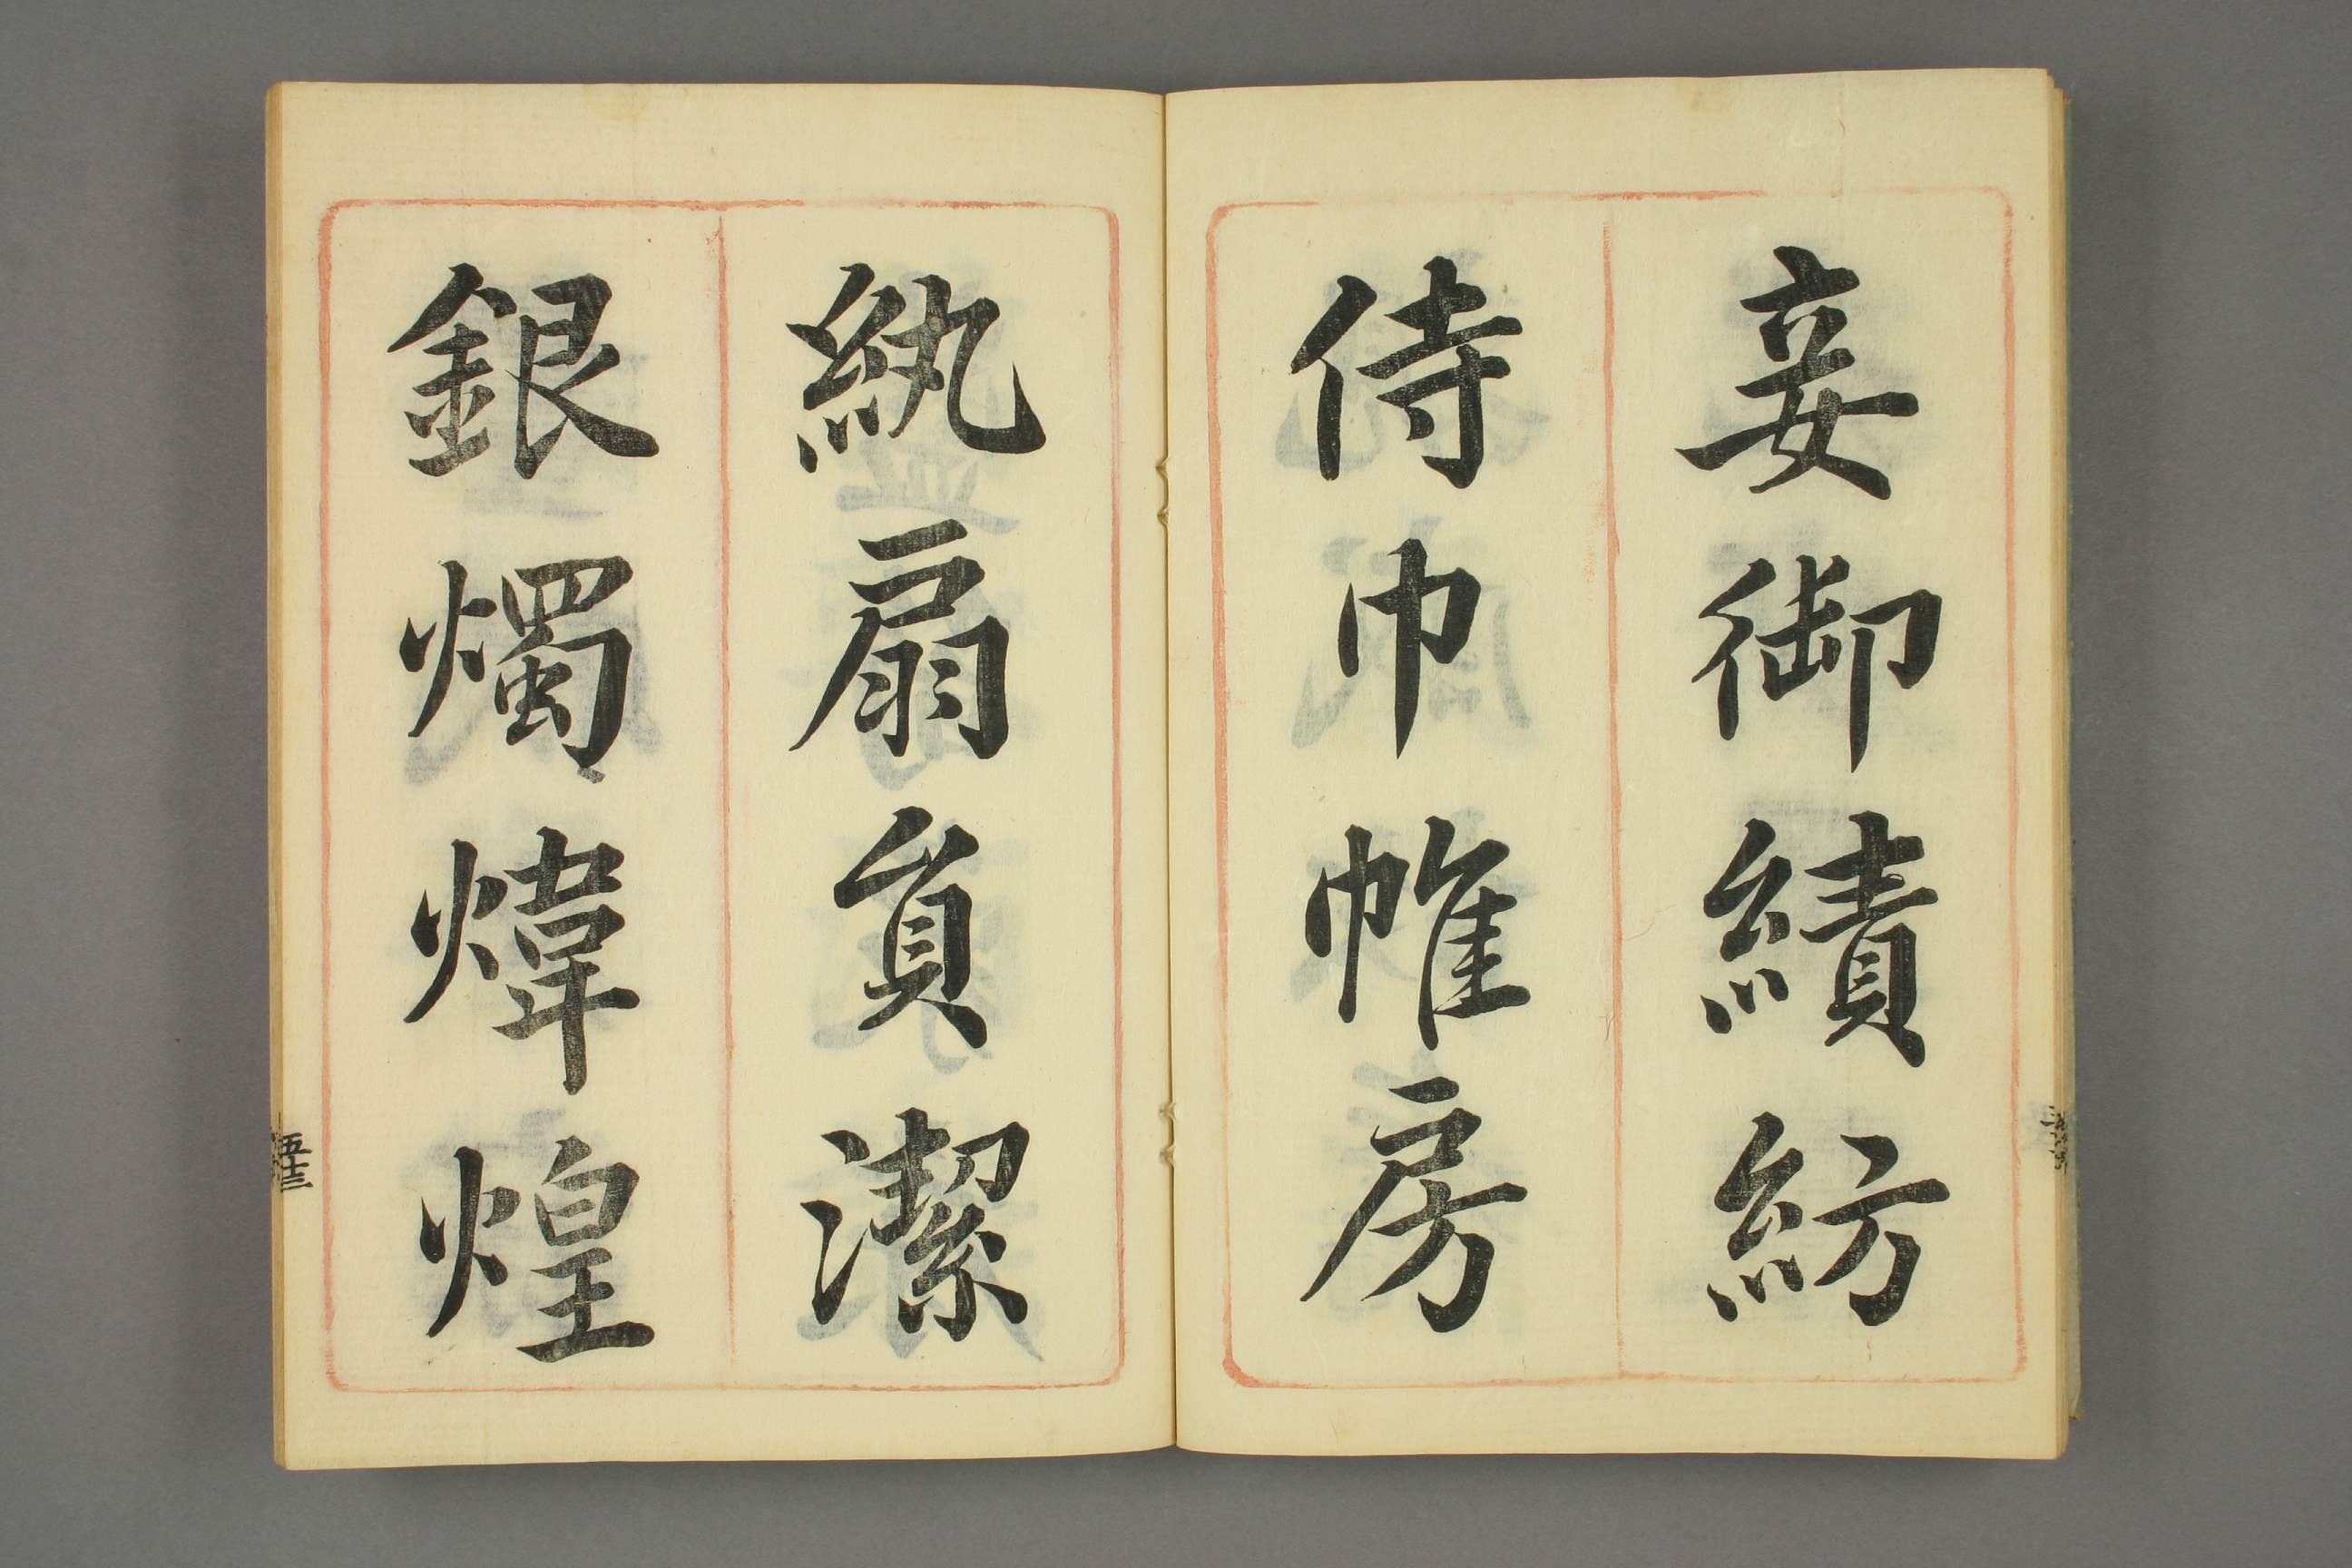 妾御績紡
侍巾帷房
紈扇員潔
銀燭煒煌
五十三